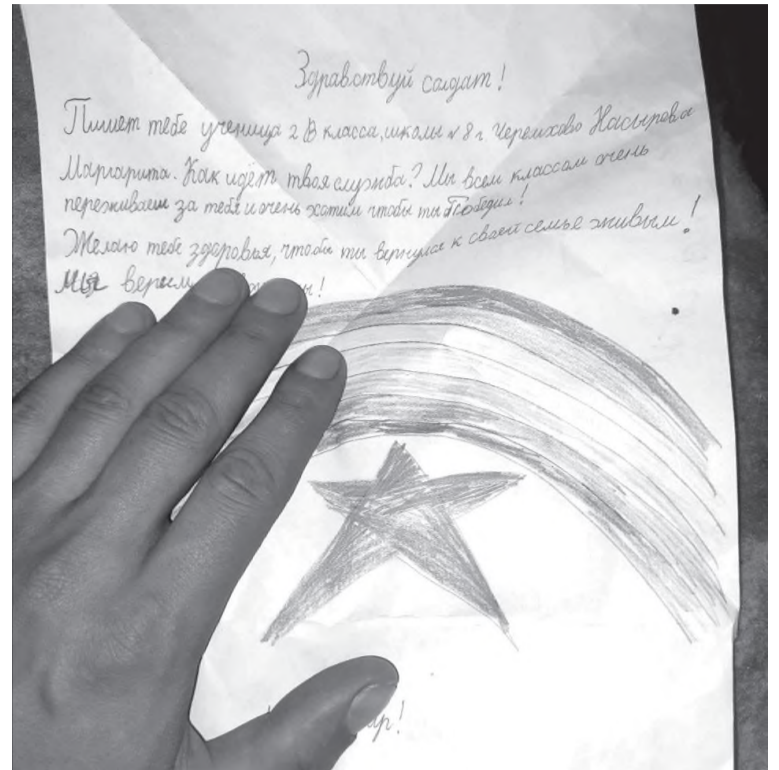 Здравствуй солдат!
Пишет тебе ученица 2 В класса, школы № 8 г. Черемхово Насырова
Маргарита. Как идёт твоя служба? Мы всем классом очень
переживаем за тебя и очень хотим чтобы ты Победил!
Желаю тебе здоровья, чтобы ты вернулся к своей семье живым!
Мы верим